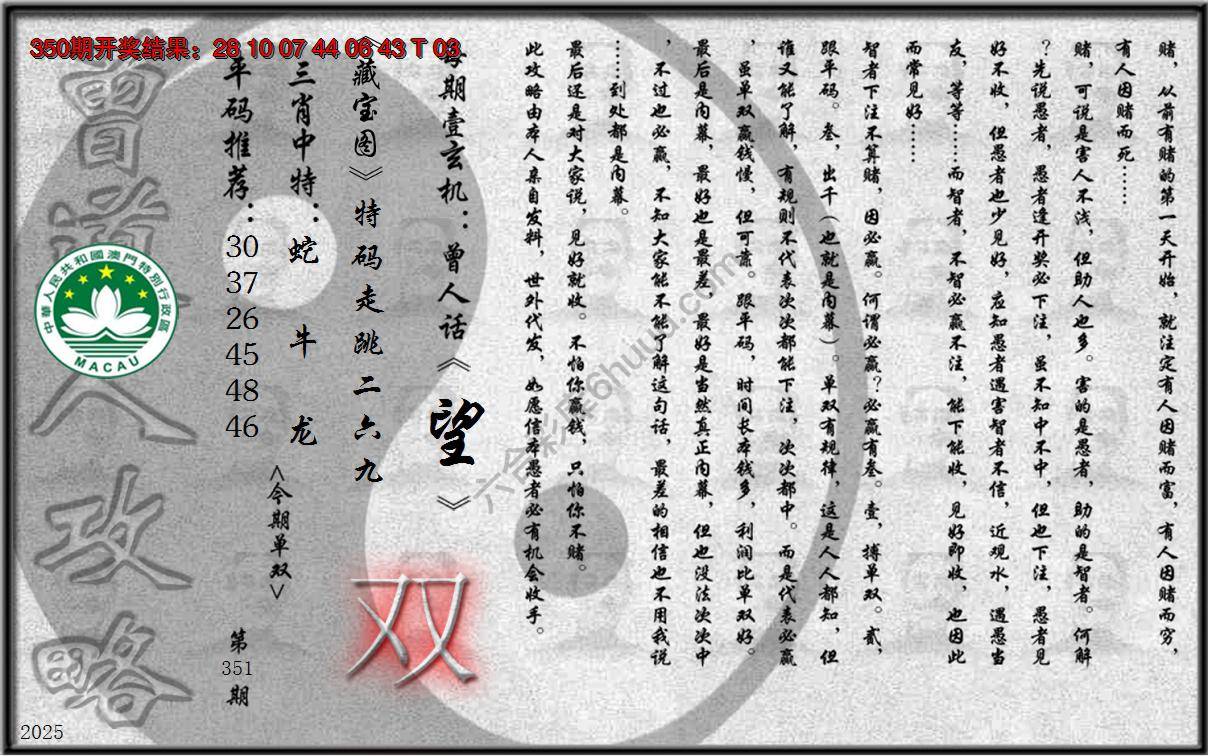 350期开奖结果：28 10 07 44 06 43 T 03
赌，从前有赌的第一天开始，就注定有人因赌而富，有人因赌而穷，
有人因赌而死……
赌，可说是害人不浅，但助人也多。害的是愚者，助的是智者。何解
？先说愚者，愚者逢开奖必下注，虽不知中不中，但也下注，愚者见
好不收，但愚者也少见好，应知愚者遇害智者不信，近观水，遇愚当
友，等等……而智者，不智必赢不注，能下能收，见好即收，也因此
而常见好……
智者下注不算赌，因必赢。何谓必赢？必赢有叁。壹，搏单双。贰，
跟平码。叁，出千（也就是内幕）。单双有规律，这是人人都知，但
谁又能了解，有规则不代表次次都能下注，次次都中。而是代表必赢
，虽单双赢钱慢，但可靠。跟平码，时间长本钱多，利润比单双好。
最后是内幕，最好也是最差，最好是当然真正内幕，但也没法次次中
，不过也必赢，不知大家能不能了解这句话，最差的相信也不用我说
……到处都是内幕。
最后还是对大家说，见好就收。不怕你赢钱，只怕你不赌。
此攻略由本人亲自发料，世外代发，如愿信本愚者必有机会收手。
每期壹玄机：曾人话《望》
《藏宝图》特码走跳二六九
三肖中特：蛇 牛 龙
<今期单双>
双
平码推荐：30 37 26 45 48 46
第351期
曾道人攻略
中華人民共和國澳門特別行政區
MACAU
2025